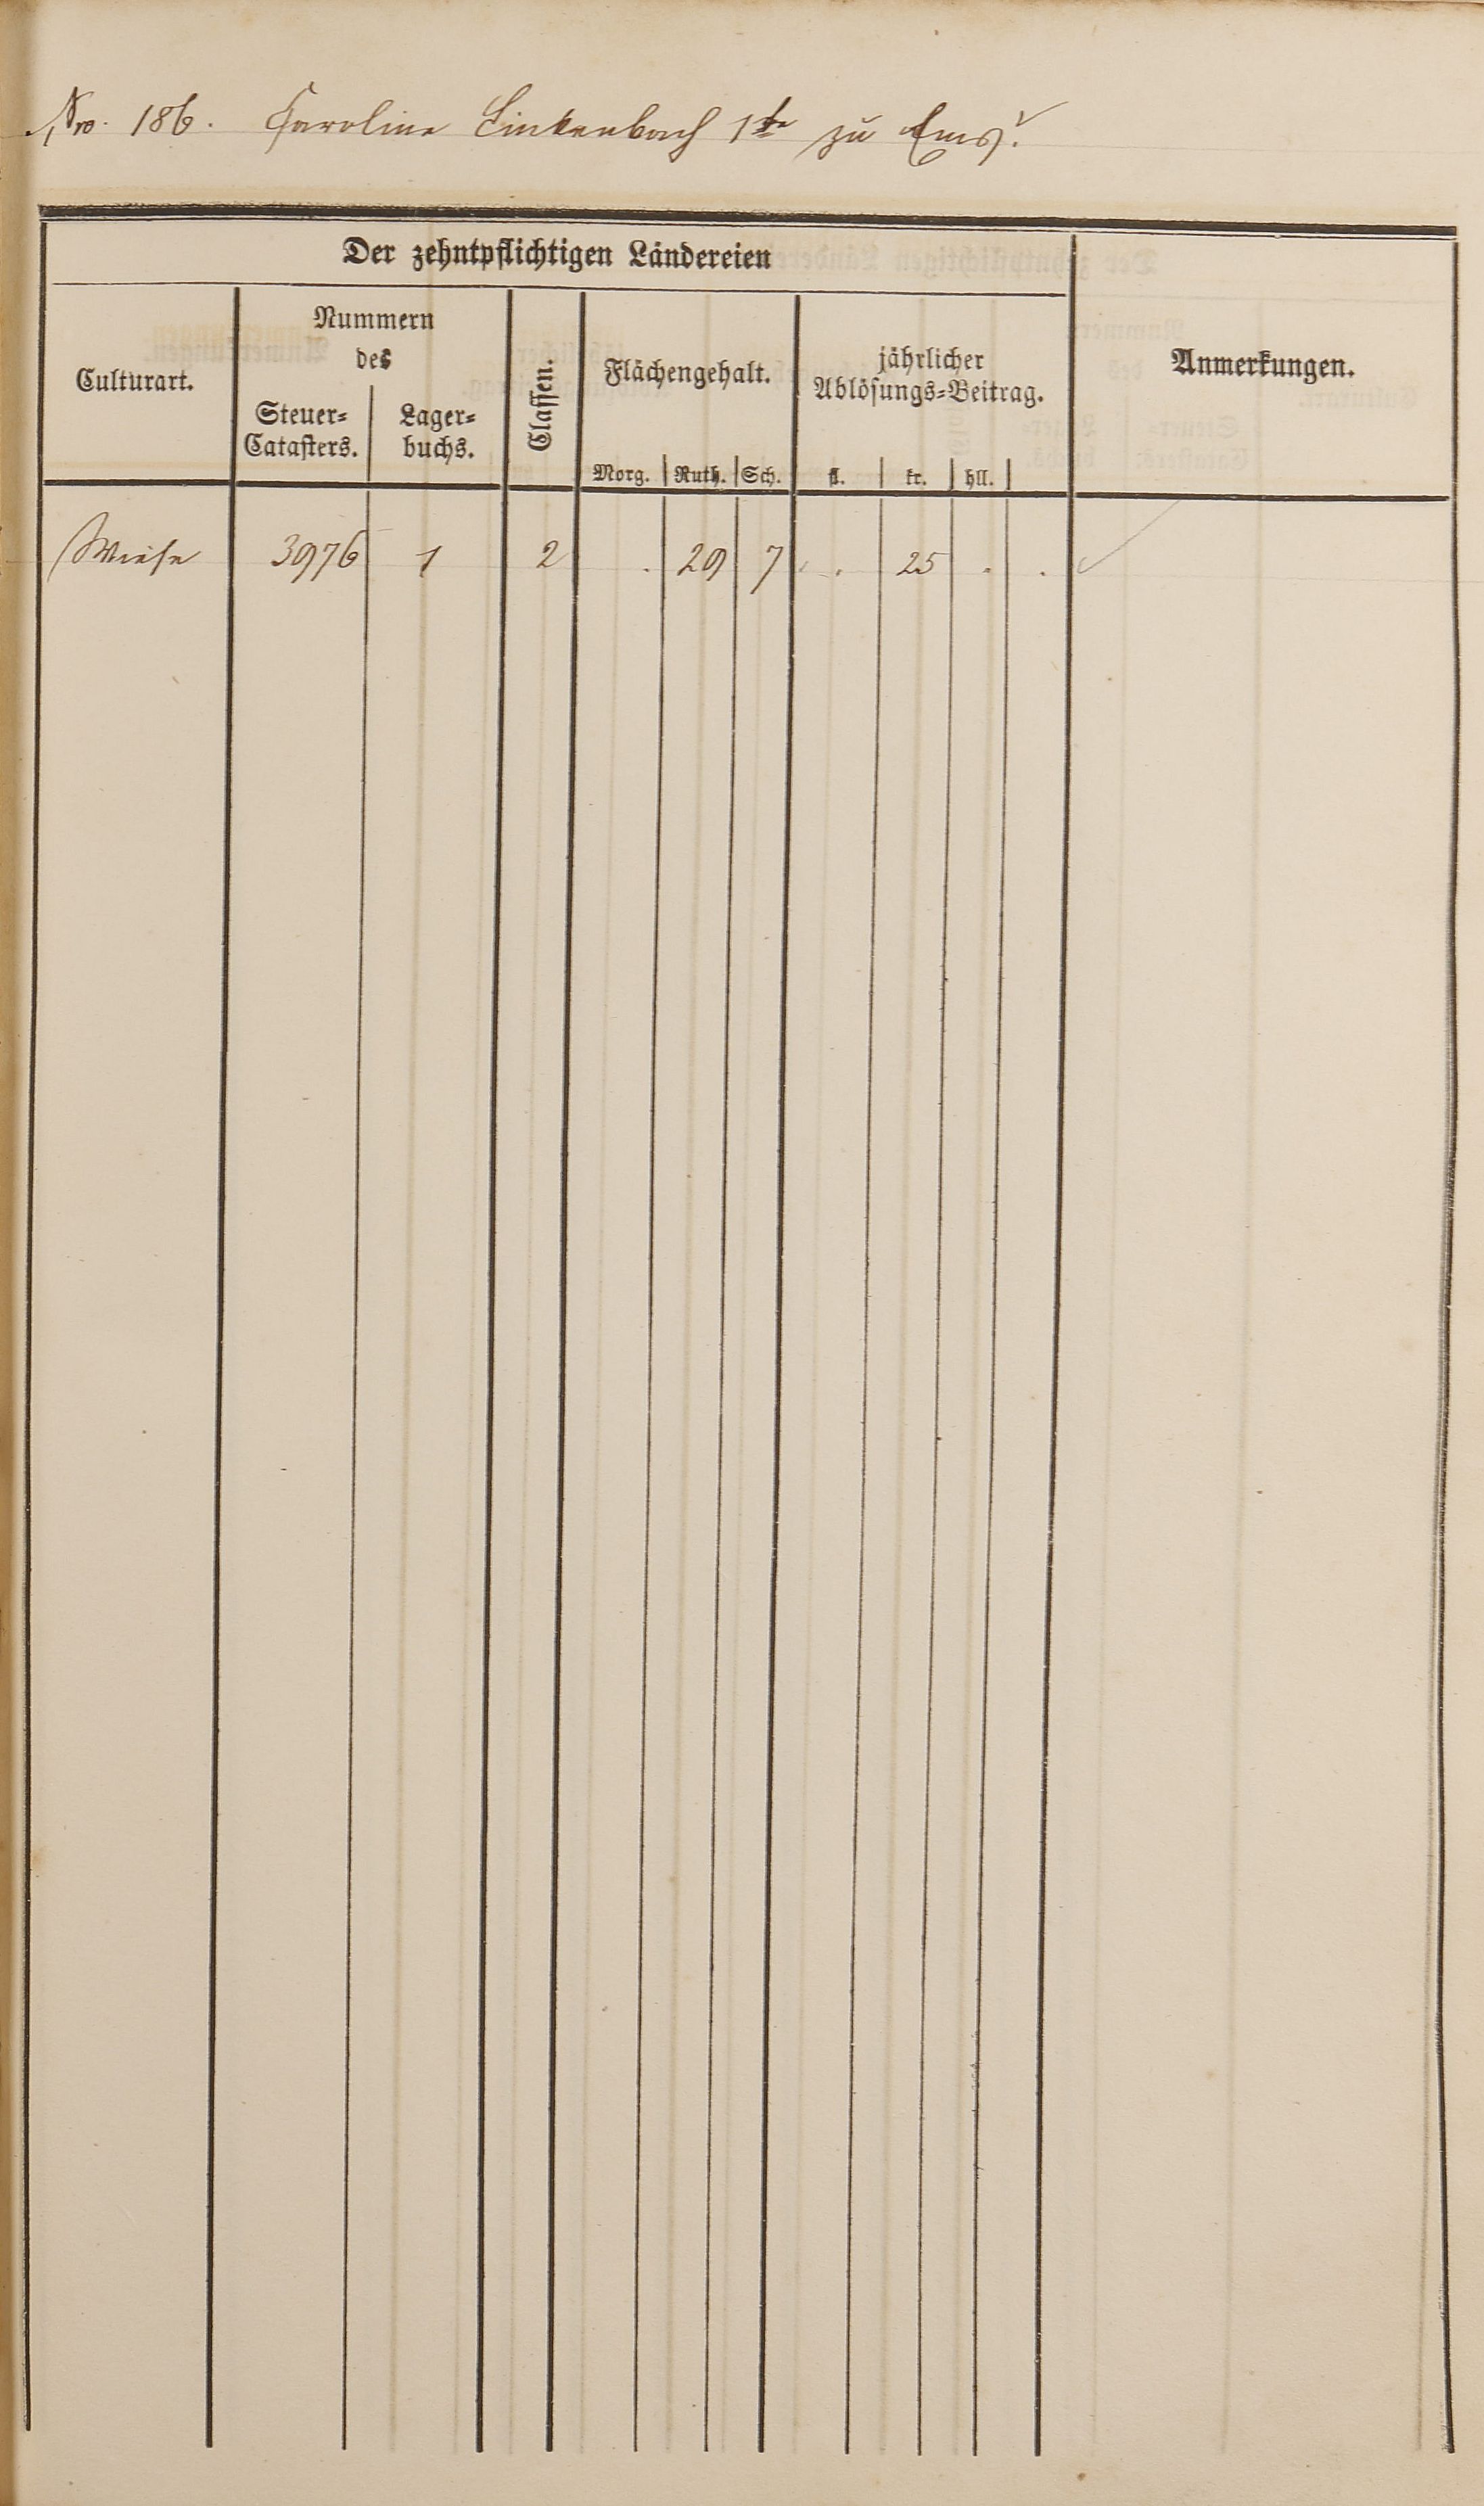 Nro. 186. Caroline Linkenbach 1te zu Ems.
Der zehntpflichtigen Ländereien
Culturart.
Nummern
des
Steuer=
Catasters.
Lager=
buchs.
Classen.
Flächengehalt.
Morg. Ruth. Sch.
jährlicher
Ablösungs=Beitrag.
fl. kr. hll.
Anmerkungen.
Wiese 3976 1 2 . 29 7 . 25 . .